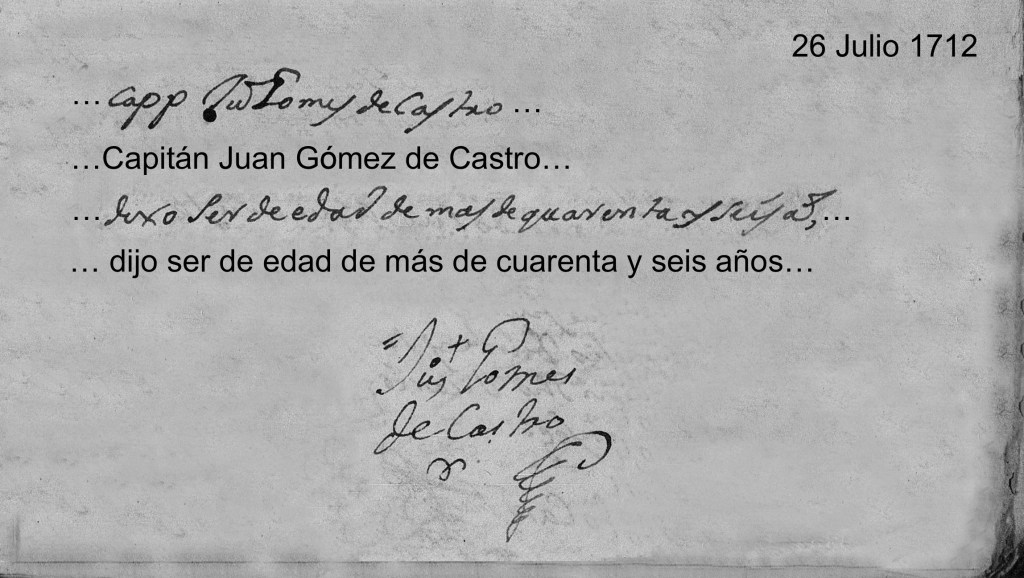 26 Julio 1712
…capp Ju Gomes de Castro…
…Capitán Juan Gómez de Castro…
…dixo ser de edad de mas de quarenta y seis as,…
… dijo ser de edad de más de cuarenta y seis años…
Jus Gomes
de Castro